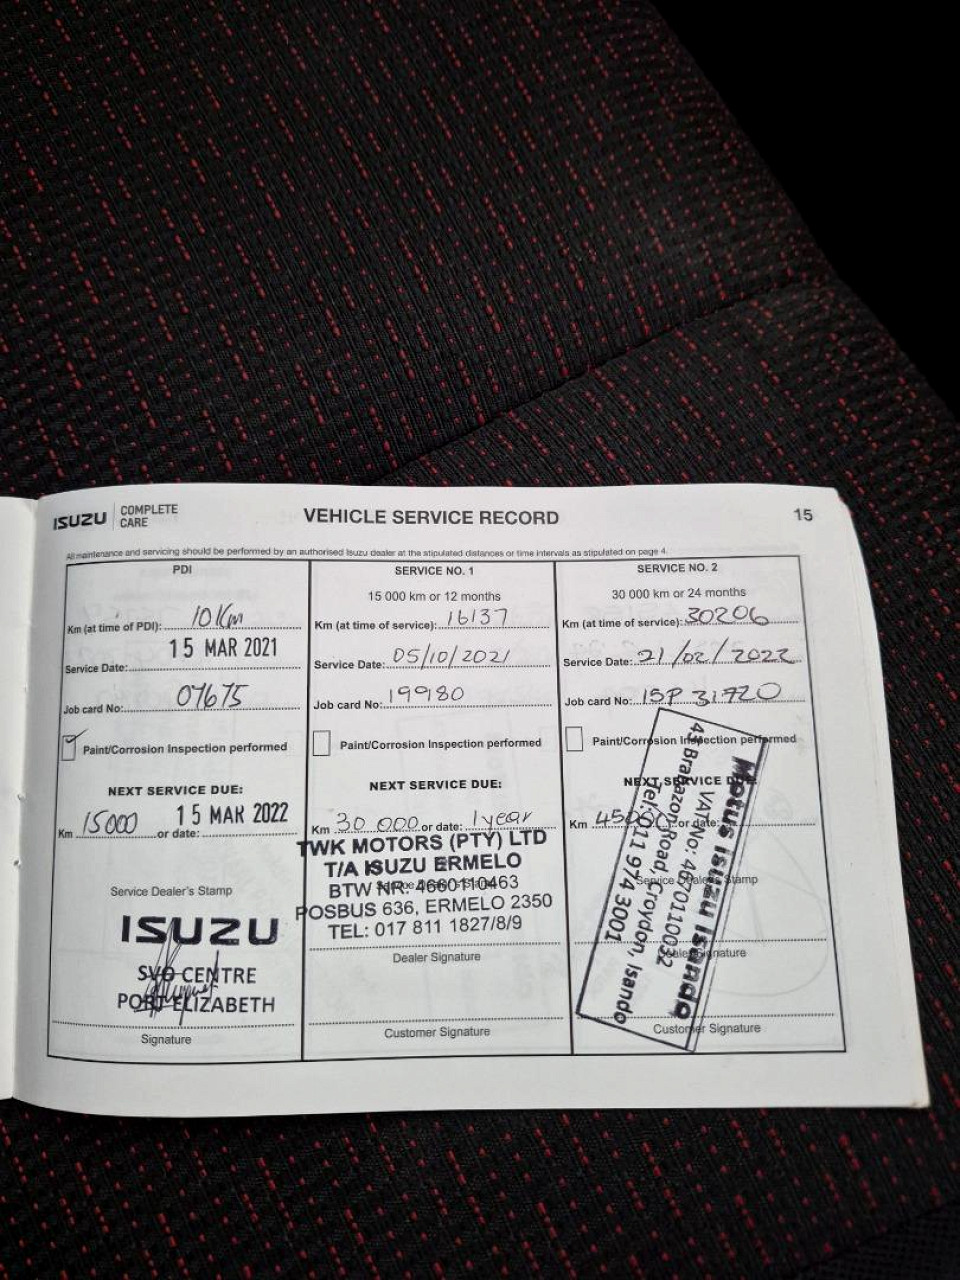 ISUZU COMPLETE CARE
VEHICLE SERVICE RECORD
15
All maintenance and servicing should be performed by an authorised Isuzu dealer at the stipulated distances or time intervals as stipulated on page 4.
PDI
Km (at time of PDI): 10 Km
Service Date: 15 MAR 2021
Job card No: 07675
Paint/Corrosion Inspection performed
NEXT SERVICE DUE:
Km 15000 or date: 15 MAR 2022
Service Dealer's Stamp
ISUZU
SVO CENTRE
PORT ELIZABETH
Signature
SERVICE NO. 1
15 000 km or 12 months
Km (at time of service): 16137
Service Date: 05/10/2021
Job card No: 19980
Paint/Corrosion Inspection performed
NEXT SERVICE DUE:
Km 30 000 or date: 1 year
TWK MOTORS (PTY) LTD
T/A ISUZU ERMELO
BTW NR: 4660110463
POSBUS 636, ERMELO 2350
TEL: 017 811 1827/8/9
Dealer Signature
Customer Signature
SERVICE NO. 2
30 000 km or 24 months
Km (at time of service): 30206
Service Date: 21/02/2022
Job card No: ISP 31720
Paint/Corrosion Inspection performed
NEXT SERVICE DUE:
Km 45000 or date:
Service Dealer's Stamp
Motus Isuzu Isando
VAT No: 4670110032
43 Brabazon Road, Croydon, Isando
Tel: 011 974 3001
Dealer Signature
Customer Signature